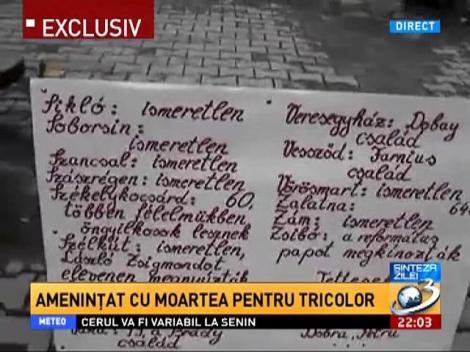 EXCLUSIV
DIRECT
Sikló: ismeretlen
Soborsin:
ismeretlen
Szancsal: ismeretlen
Szászrégen: ismeretlen
Székelykocsárd: 60.
többen félelmükben
öngyilkosok lesznek
Szélkút: ismeretlen,
László Zsigmondot
elevenen megnyúzták
család
Veresegyház: Dobay
család
Vessződ: Farnius
család
Vörösmart: ismeretlen
Zalatna: 64
Zám: ismeretlen
Zsibó: a református
papot megkínozták
Dobra, Petru
SINTEZA
ZILEI
3
AMENINȚAT CU MOARTEA PENTRU TRICOLOR
METEO CERUL VA FI VARIABIL LA SENIN
22:03